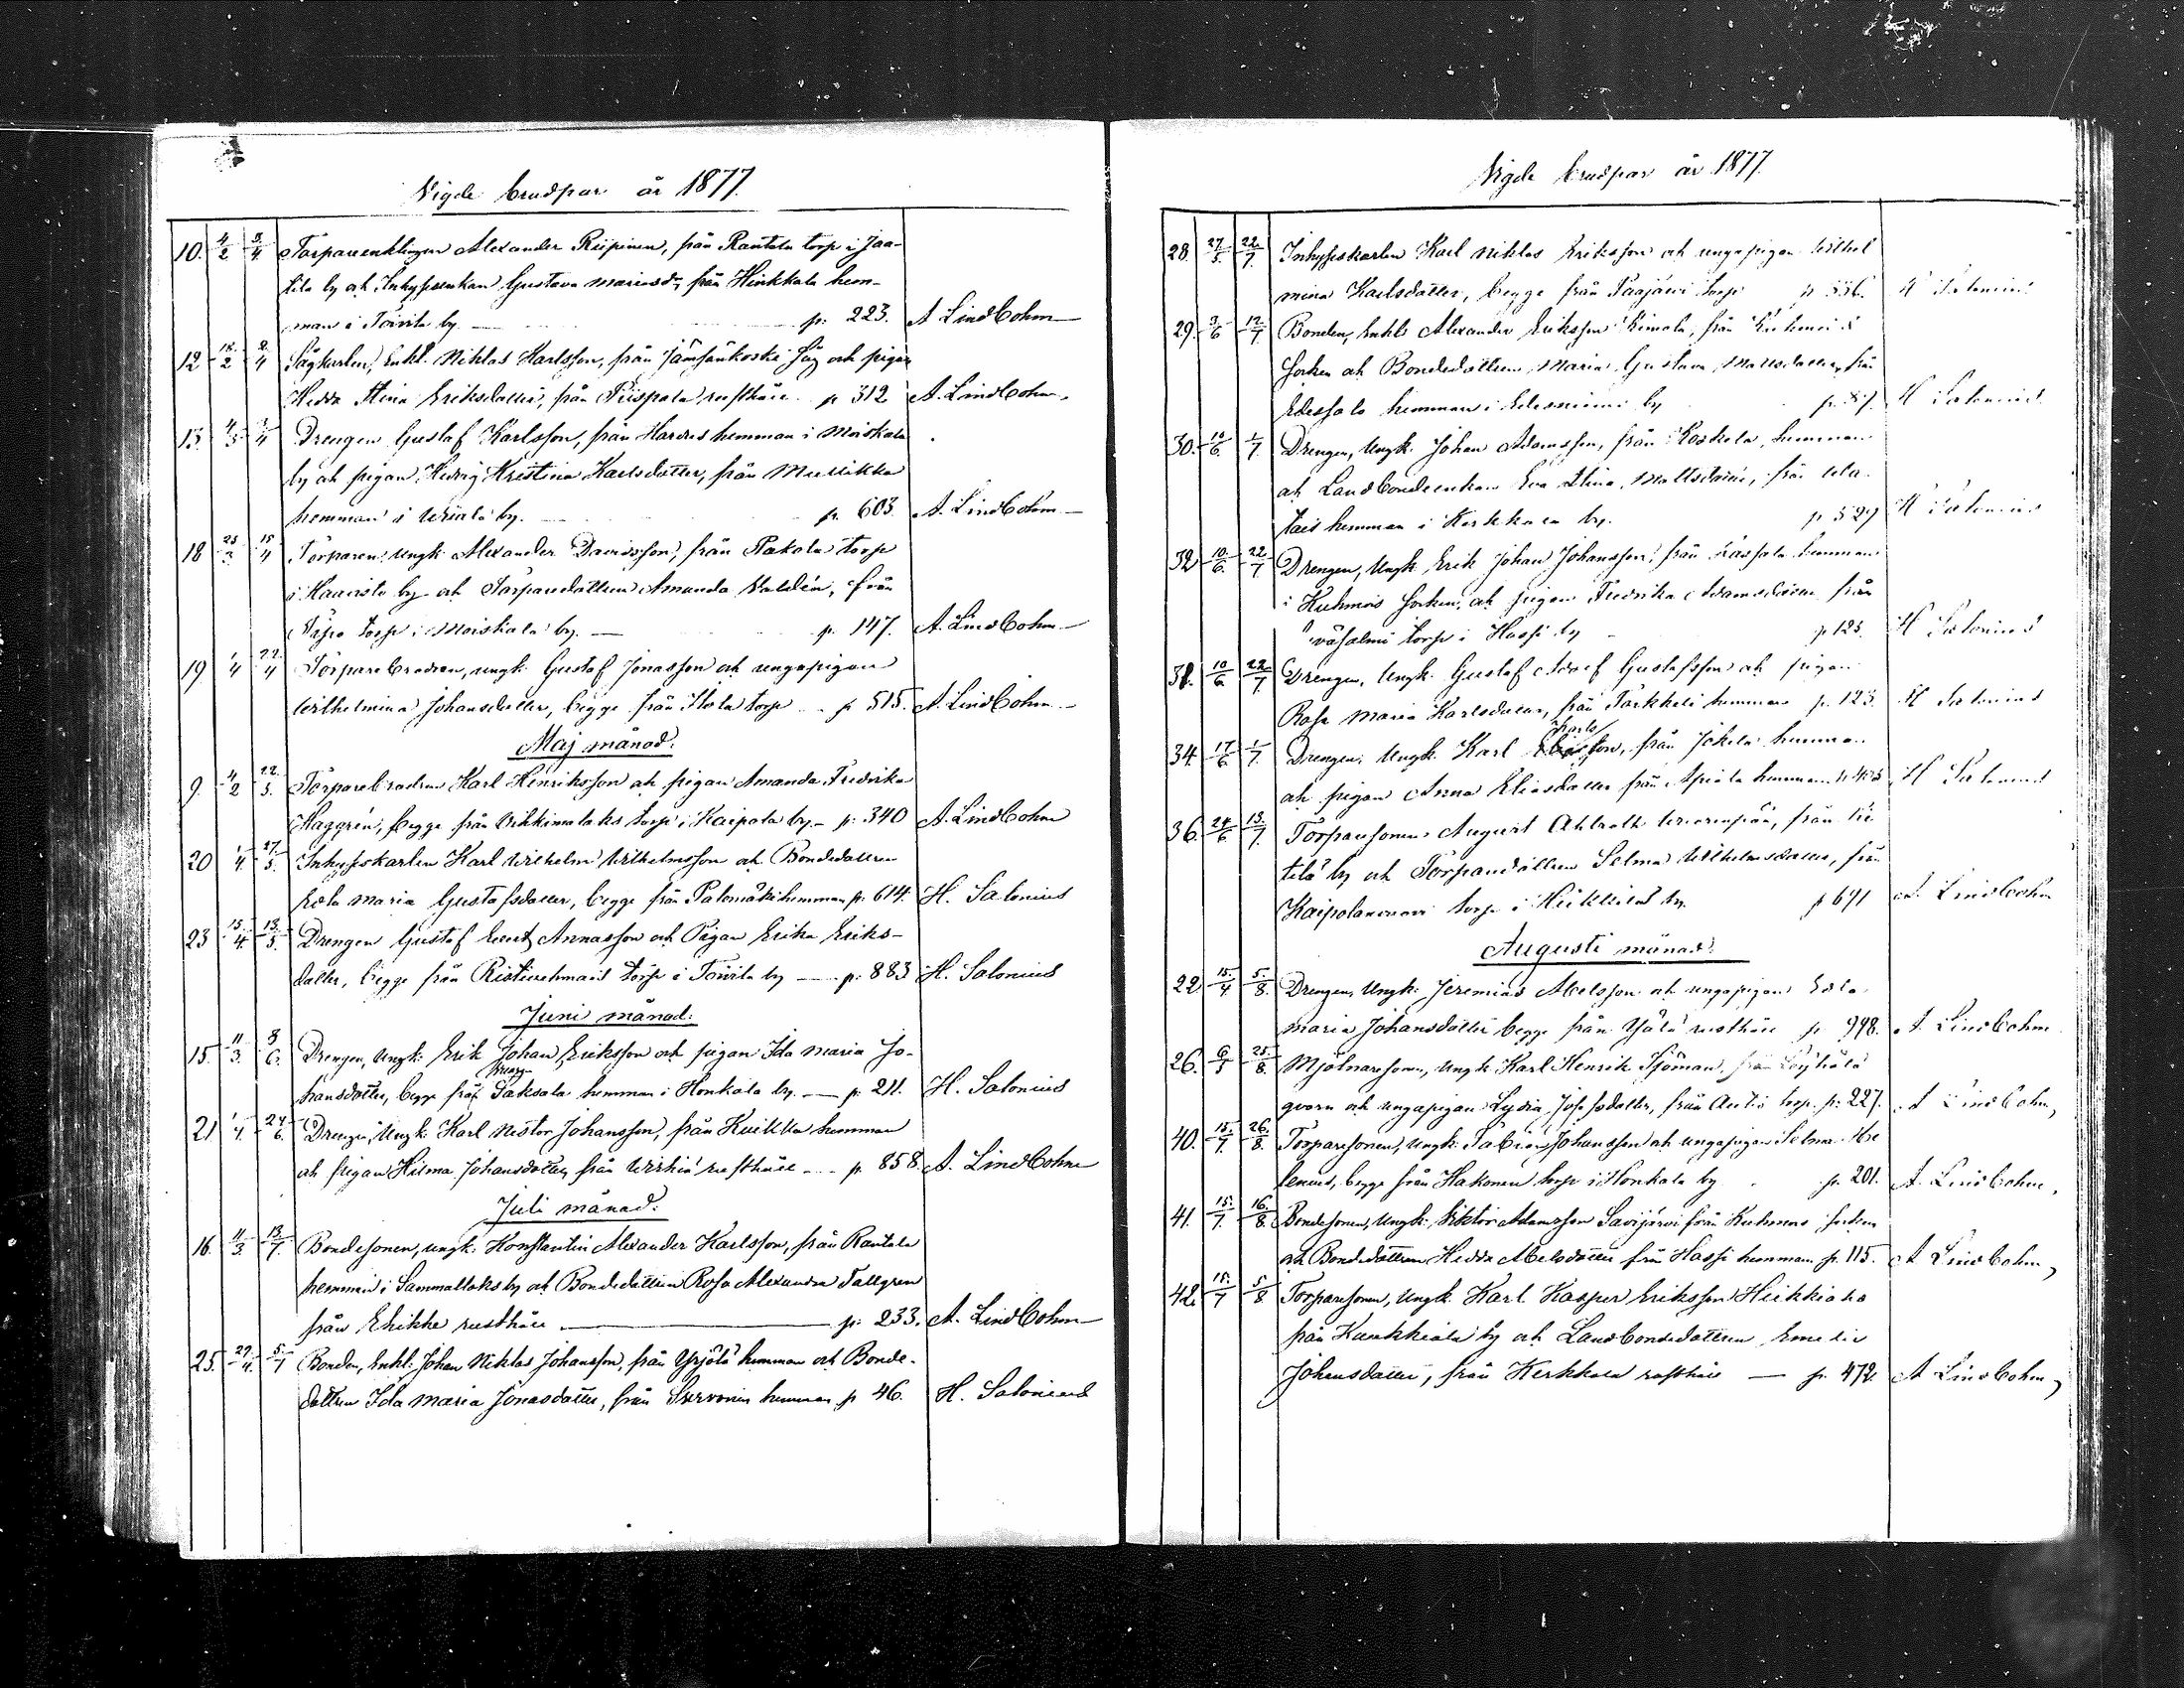 Vigde brudpar år 1877.
10. 4/2 8/4 Torpareenklingen Alexander Riipinen, från Rantala torp i Jaa-
tila by och Inhysesenkan Gustava Mariasdr, från Hinkkala hem-
man i Toivila by. — p: 223. A Lindbohm
12 18/2 2/4 Sågkarlen, Enkl. Niklas Karlsson, från Jämsänkoski Såg och pigan
Hedda Stina Eriksdotter, från Piispala rusthåll p 312 A. Lindbohm
13. 4/3 /4 Drengen Gustaf Karlsson, från hemman i Moiskala
by och pigan Hedvig Kristina Karlsdotter, från Mullikka
hemman i by. p. 603. A. Lindbohm
18 25/3 15/4 Torparen Ungk. Alexander Davidsson, från Pakola torp
i Haavisto by och Torparedottren Amanda Valdén, från
torp i Moiskala by. — p. 147. A. Lindbohm
19 1/4 22/4 Torparebrodren, ungk. Gustaf Jonasson och ungapigan
Wilhelmina Johansdotter, begge från Hola torp p 515. A. Lindbohm
Maj månad.
9. 4/2 22/5. Torparebrodren Karl Henriksson och pigan Amanda Fredrika
Haggrén, begge från torp i Kaipola by. — p: 340 A. Lindbohm
20 1/4. 27/5. Inhyseskarlen Karl Wilhelm Wilhelmsson och Bondedottren
Eola Maria Gustafsdotter, begge från Palomäki hemman p: 614. H. Salonius
23 15/4. 13/5. Drengen Gustaf Evert Annasson och Pigan Erika Eriks-
dotter, begge från torp i Toivila by — p: 883 H. Salonius
Juni månad.
15. 11/3. 3/6. Drengen, Ungk: Erik Johan Eriksson och pigan Ida Maria Jo-
hansdotter, begge från Saksala hemman i Honkola by. — p: 211. H. Salonius
21 1/4. 24/6. Drengen, Ungk: Karl Nestor Johansson, från Kuikka hemman
och pigan Hilma Johansdotter, från rusthåll — p. 858. A. Lindbohm
Juli månad.
16. 11/3. 13/7. Bondesonen, ungk: Konstantin Alexander Karlsson, från Rantala
hemman i Sammallaks by och Bondedottren Rosa Alexandra Tallgren
från rusthåll — p: 233. A. Lindbohm
25. 29/4. 5/7 Bonden, Enkl: Johan Niklas Johansson, från Yrjölä hemman och Bonde-
dottren Ida Maria Jonasdotter, från hemman p 46. H. Salonius
Vigde brudpar år 1877.
28. 27/5. 22/7. Inhyseskarlen Karl Niklas Eriksson och ungapigan Wilhel
mina Karlsdotter, begge från torp p 536. H Salonius
29. 3/6 12/7 Bonden, Enkl: Alexander Eriksson från Kuhmois
Socken och Bondedottren Maria Gustava Mattsdotter, från
Edessalo hemman i Edesniemi by p. H Salonius
30. 10/6. 1/7. Drengen, Ungk. Johan Adamsson, från Koskela hemman
och Landbondeenkan Eva Stina Mattsdotter, från
hemman i by. p 529 H Salonius
32 10/6. 22/7 Drengen, Ungk: Erik Johan Johansson från hemman
i Kuhmois Socken, och pigan Fredrika Adamsdotter från
torp i Hassi by p 125. H Salonius
10/6. 22/7 Drengen, Ungk: Gustaf Adolf Gustafsson och pigan
Rosa Maria Karlsdotter, från hemman p. 123. H Salonius
34 17/6 1/7. Drengen, Ungk. Karl Karlsson, från Jokela hemman
och pigan Anna Eliasdotter från hemman H Salonius
36. 24/6 15/7. Torparesonen August Ahlroth från
by och Torparedottren Selma Wilhelmsdotter, från
torp i by. p 691 A. Lindbohm
Augusti månad.
22. 15/4 5/8. Drengen, Ungk: Jeremias Abelsson och ungapigan Eola
Maria Johansdotter begge från rusthåll p 998. A. Lindbohm
26. 6/5 25/8. Mjölnaresonen, Ungk Karl Henrik Sjöman, från
qvarn och ungapigan Lydia Josefsdotter, från Autio torp. p: 227. A Lindbohm
40. 15/7. 26/8. Torparesonen, Ungk: Johansson och ungapigan Selma He
lenius, begge från Hakonen torp i Honkola by p. 201. A. Lindbohm
41. 15/7. 16/8. Bondesonen, Ungk: Viktor Adamsson Savijärvi från Kuhmois Socken
och Bondedottren Hedda Abelsdotter från Hassi hemman p. 115. A Lindbohm
42. 15/7 5/8 Torparesonen, Ungk: Karl Kasper Eriksson
från by och Landbondedottren
Johansdotter, från Kerkkola rusthåll — p. 472. A Lindbohm